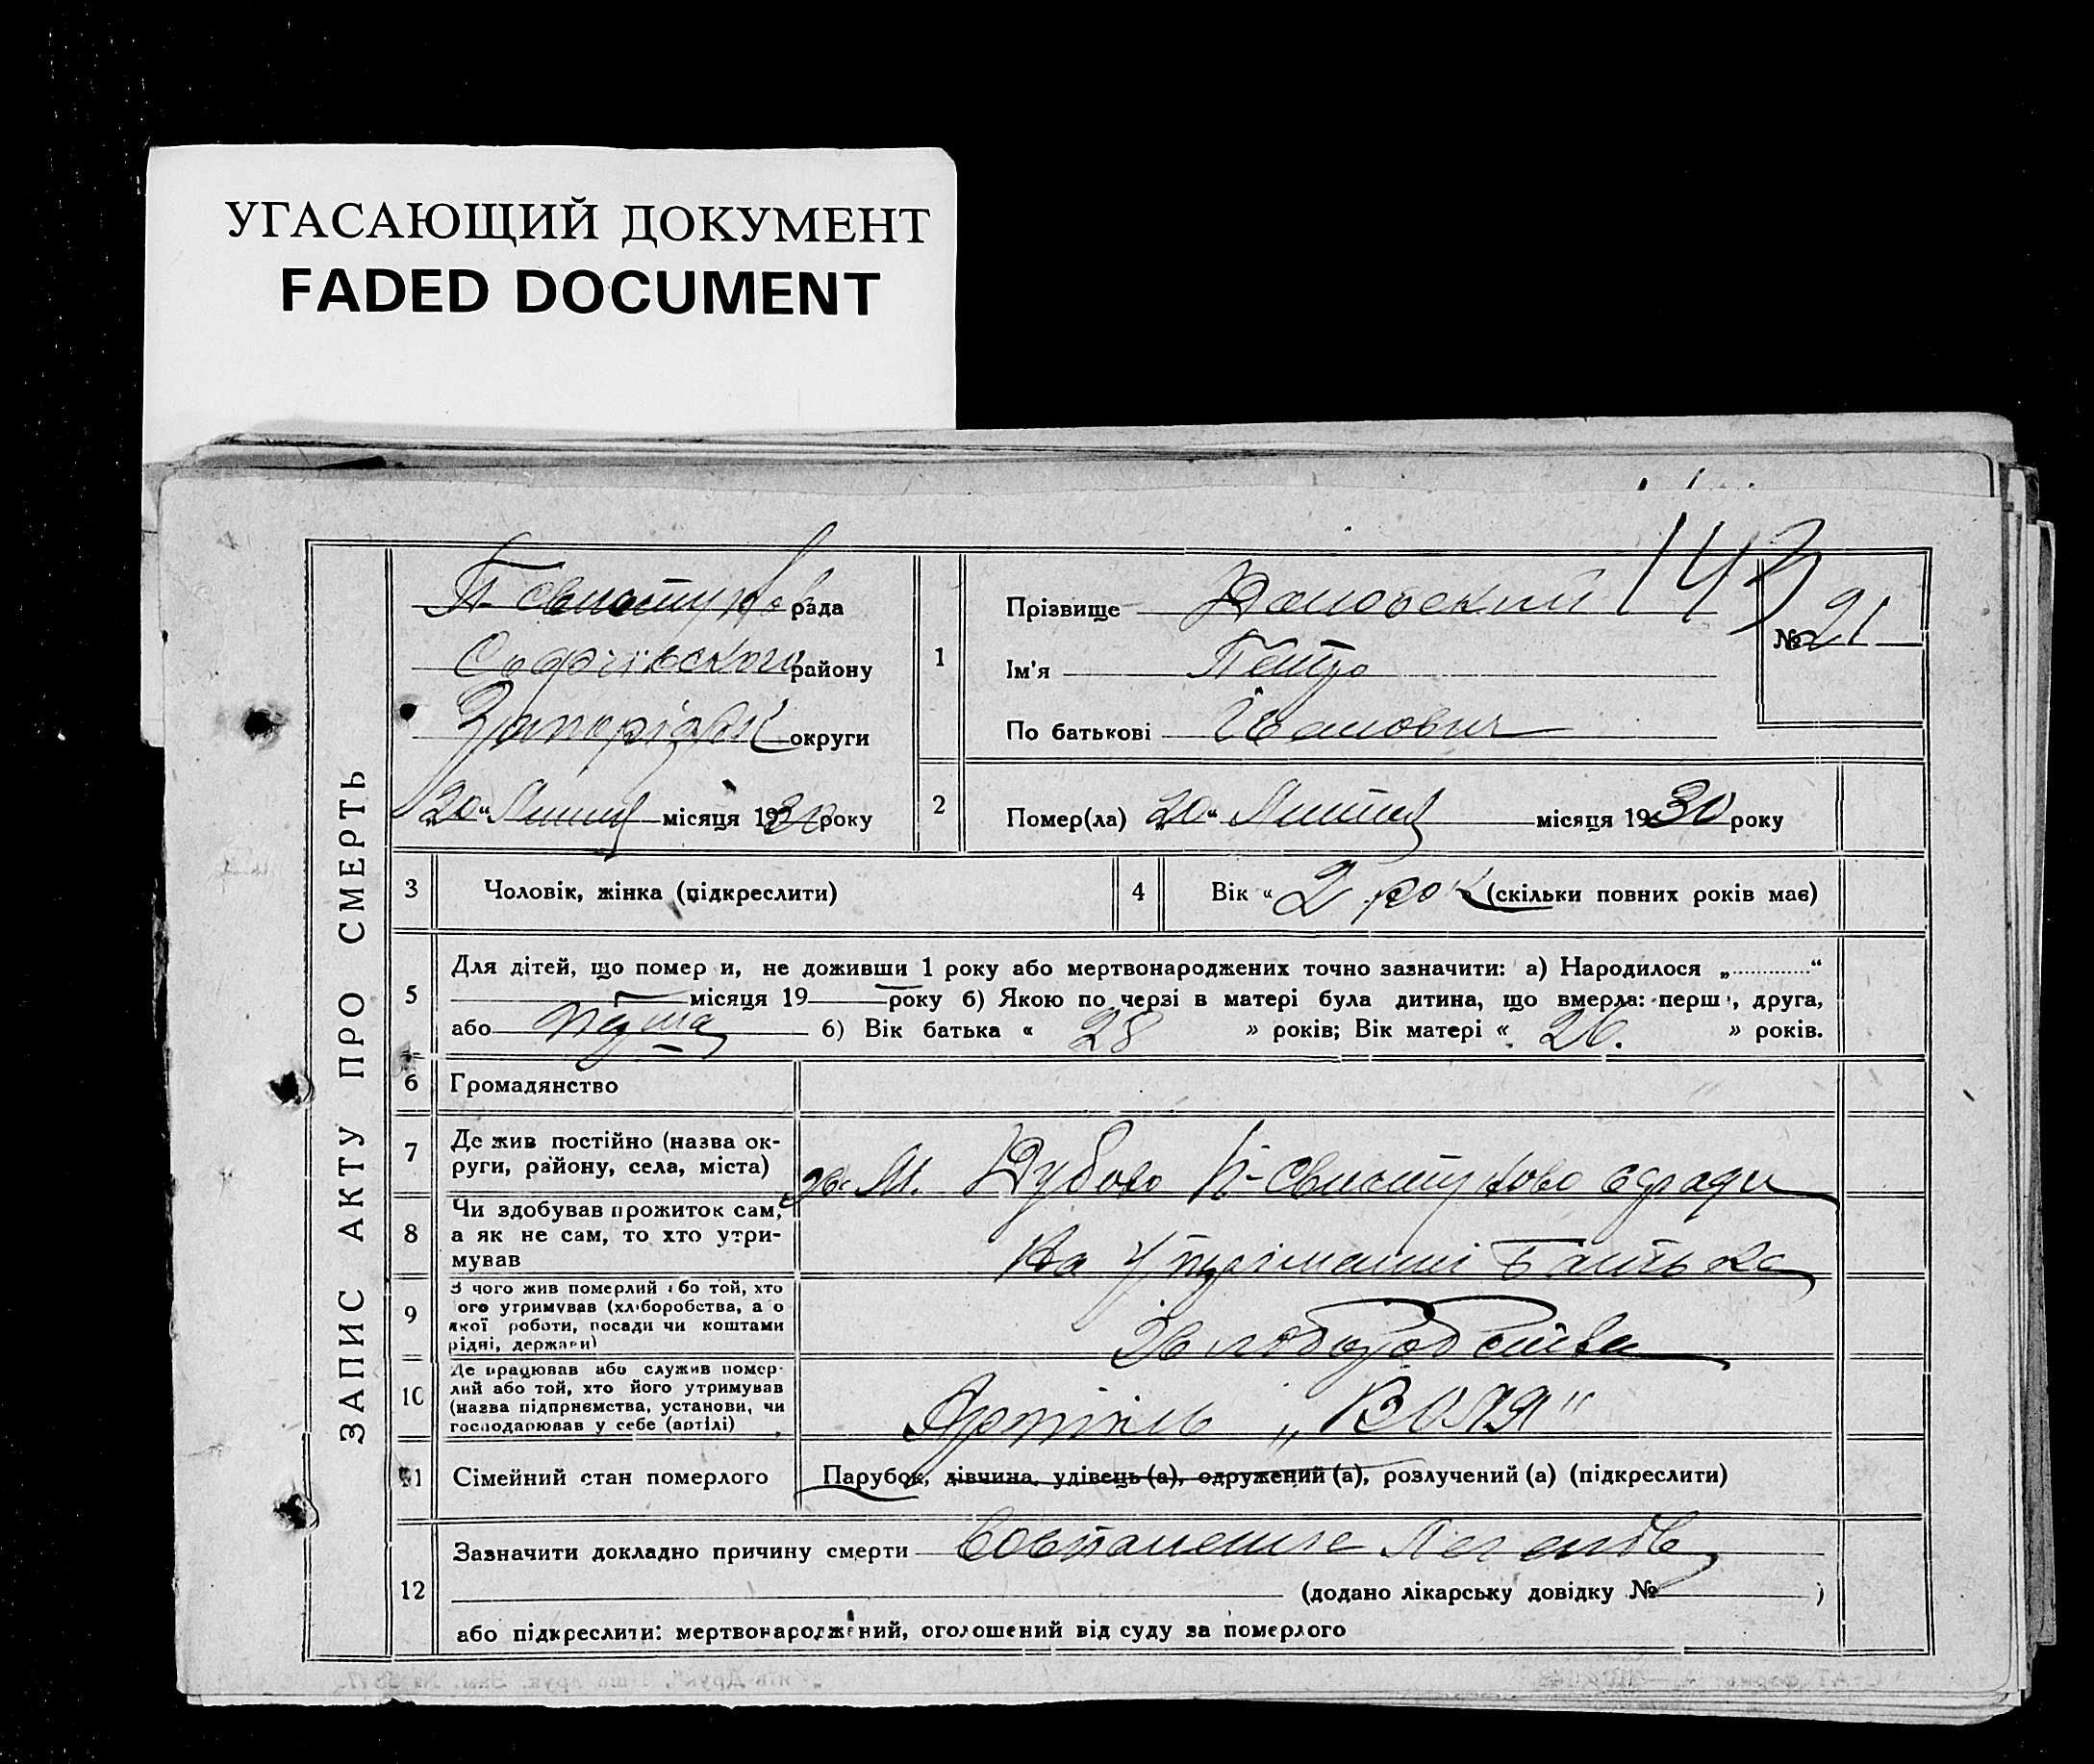 УГАСАЮЩИЙ ДОКУМЕНТ
FADED DOCUMENT
143
ЗАПИС АКТУ ПРО СМЕРТЬ
рада
Софіївского району
округи
„20“ Липня місяця 1930 року
1
Прізвище
Ім'я Петро
По батькові Іванович
№ 21
2
Помер(ла) „20“ Липня місяця 1930 року
3
Чоловік, жінка (підкреслити)
4
Вік « 2 рок (скільки повних років має)
5
Для дітей, що помер и, не доживши 1 року або мертвонароджених точно зазначити: а) Народилося „ “
місяця 19 року б) Якою по черзі в матері була дитина, що вмерла: перш , друга,
або б) Вік батька « 28 » років; Вік матері « 26. » років.
6
Громадянство
7
Де жив постійно (назва ок-
руги, району, села, міста)
8
Чи здобував прожиток сам,
а як не сам, то хто утри-
мував
На утриманні Батька
9
З чого жив померлий або той, хто
ого утримував (хліборобства, а о
якої роботи, посади чи коштами
рідні, держави)
10
Де працював або служив помер-
лий або той, хто його утримував
(назва підприємства, установи, чи
господарював у себе (артілі)
Артіль „ВОЛЯ“
11
Сімейний стан померлого
Парубок, дівчина, удівець (а), одружений (а), розлучений (а) (підкреслити)
12
Зазначити докладно причину смерти
(додано лікарську довідку № )
або підкреслити: мертвонароджений, оголошений від суду за померлого